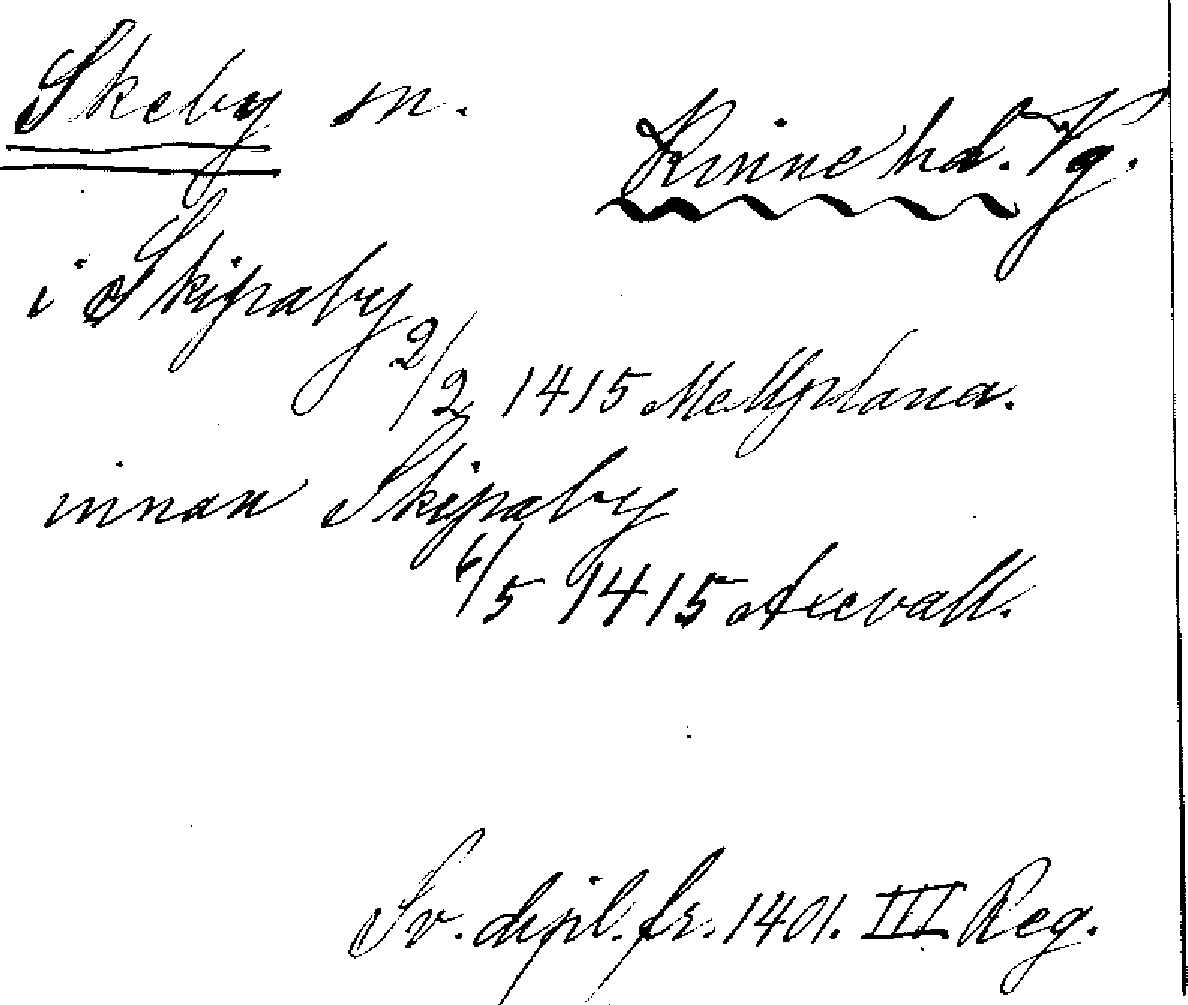 Skeby sn.
Kinne hd. Vg.
i Skipaby
2/2 1415 Mellplana.
innan Skipaby
6/5 1415 Axevall.
Sv. dipl. fr. 1401. III Reg.